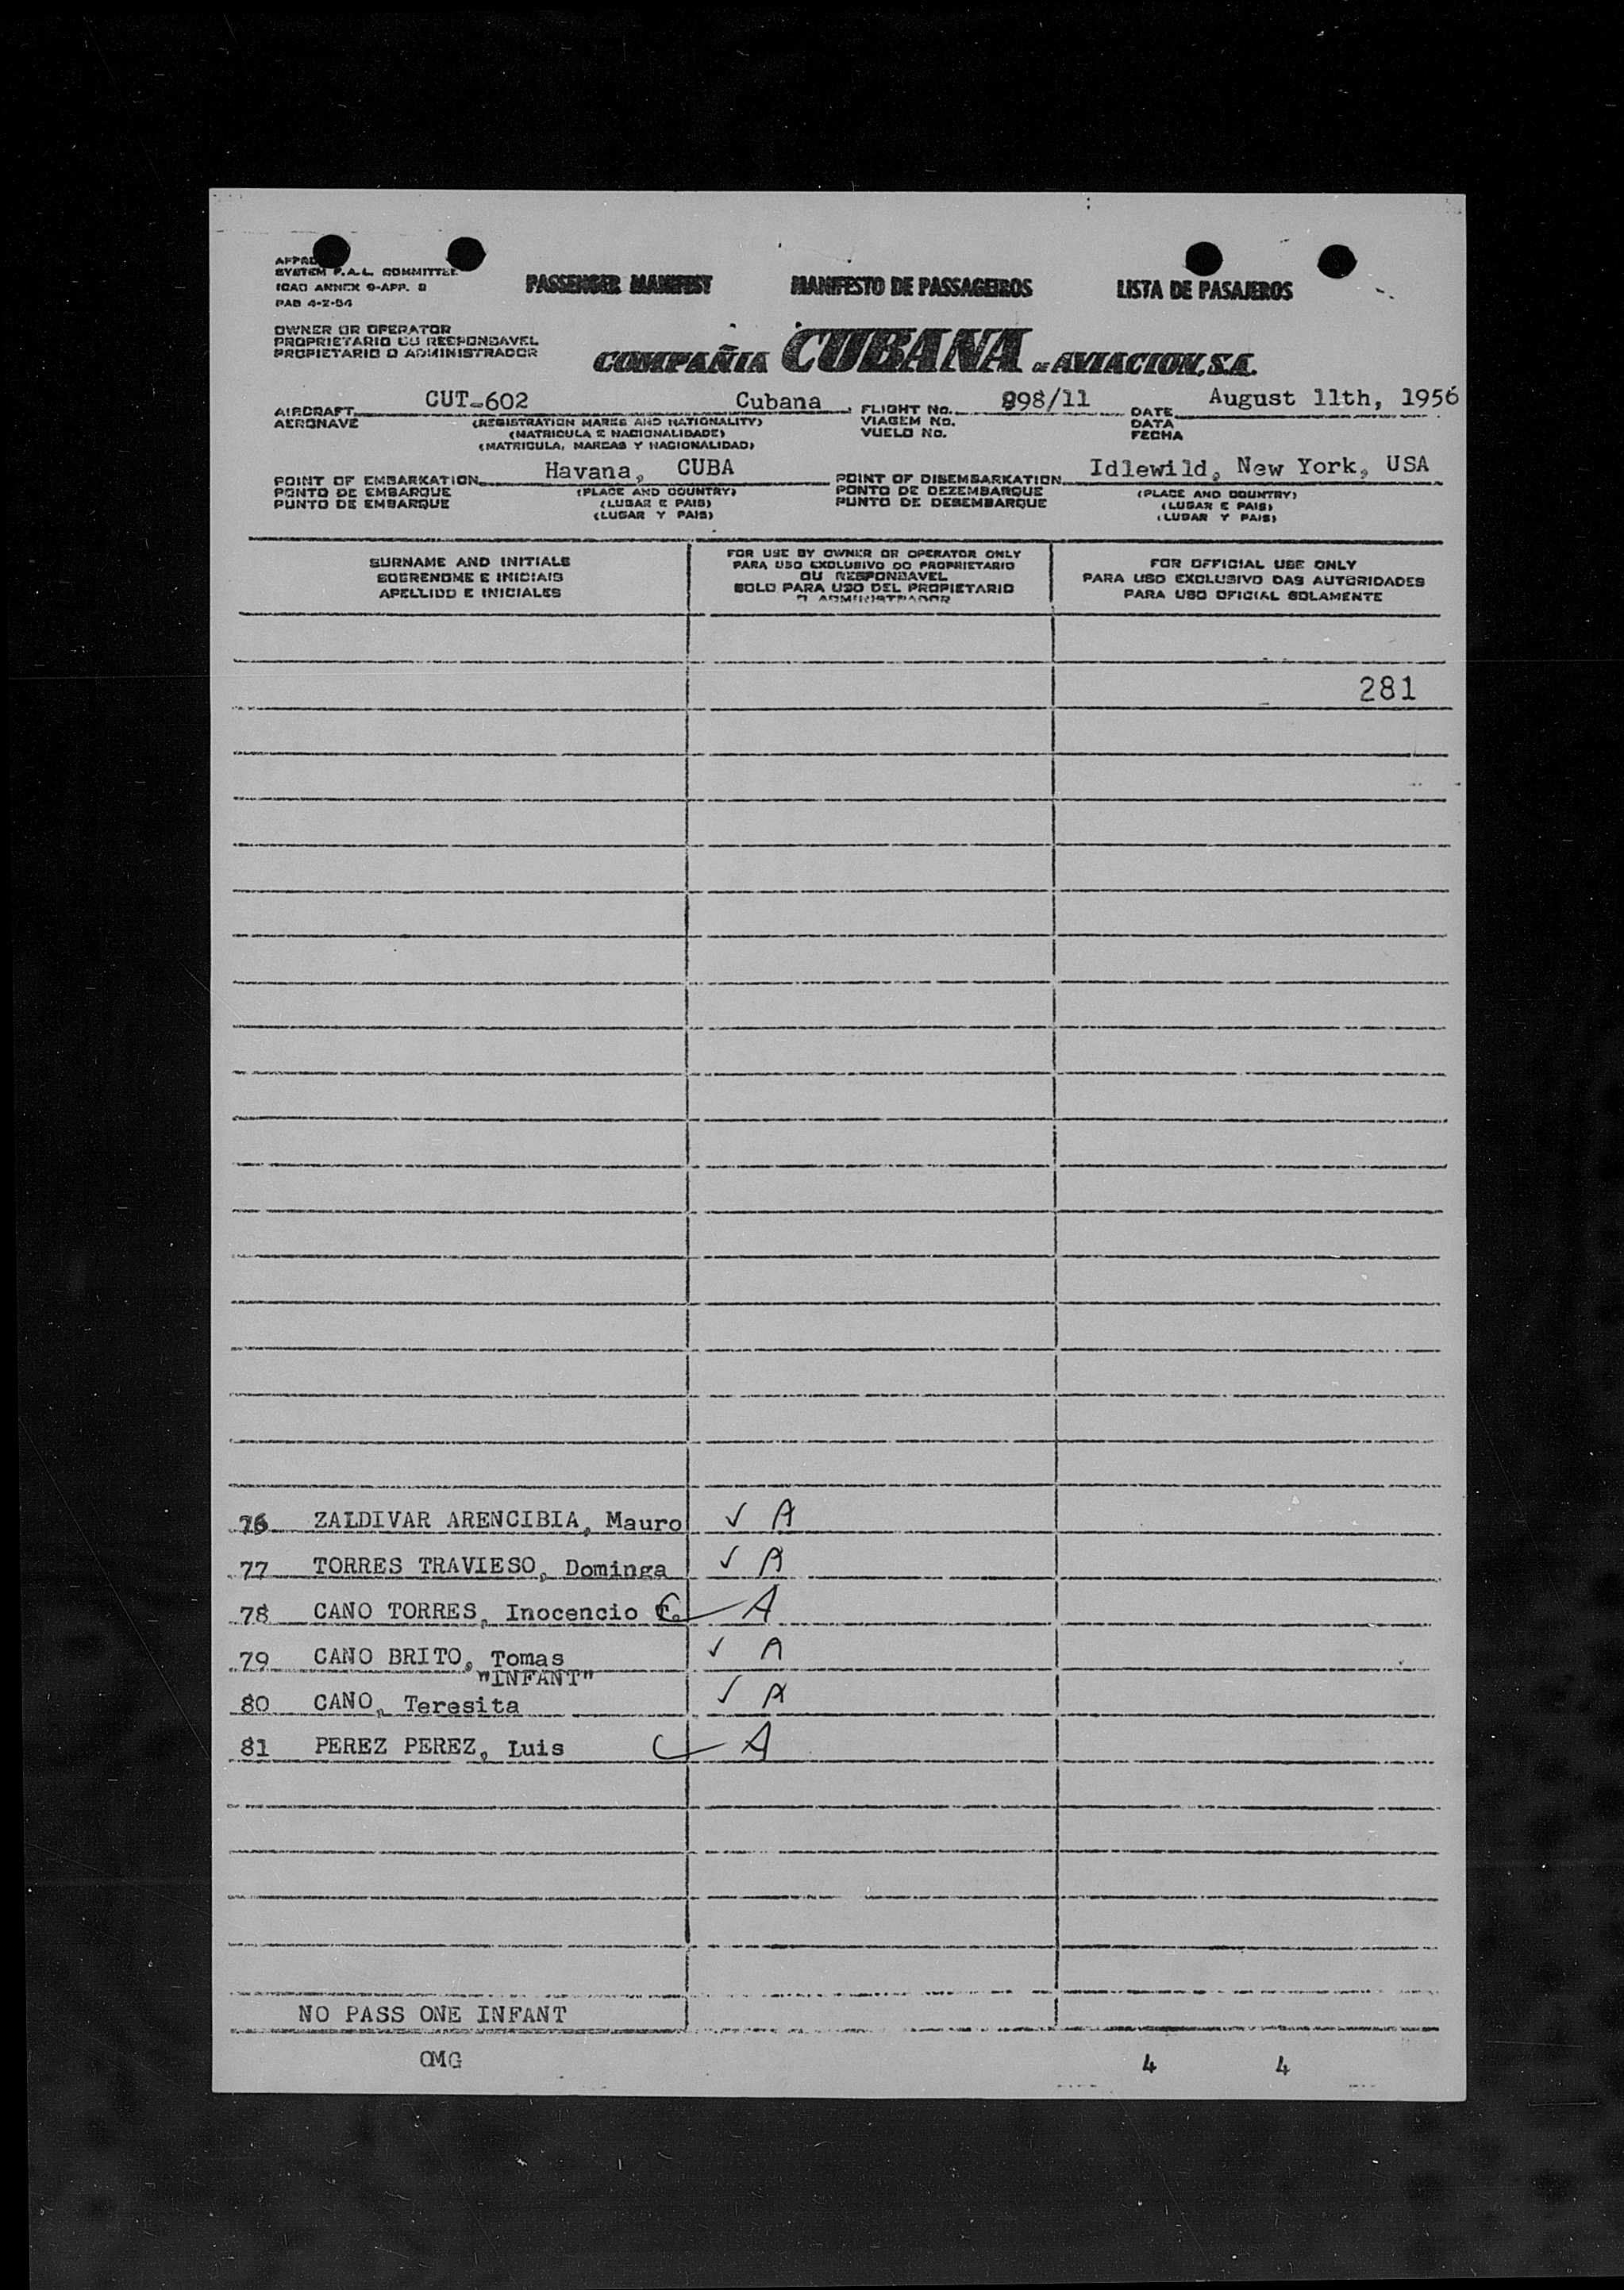 SYSTEM F.A.L. COMMITTEE
ICAO ANNEX 9-APP. 8
PAB 4-2-54
PASSENGER MANIFEST MANIFESTO DE PASSAGEIROS LISTA DE PASAJEROS
OWNER OR OPERATOR
PROPRIETARIO OU RESPONSAVEL
PROPIETARIO O ADMINISTRADOR
COMPAÑIA CUBANA DE AVIACION, S.A.
AIRCRAFT CUT-602 Cubana FLIGHT No. 998/11 DATE August 11th, 1956
AERONAVE (REGISTRATION MARKS AND NATIONALITY) VIAGEM No. DATA
(MATRICULA E NACIONALIDADE) VUELO No. FECHA
(MATRICULA, MARCAS Y NACIONALIDAD)
POINT OF EMBARKATION Havana, CUBA POINT OF DISEMBARKATION Idlewild, New York, USA
PONTO DE EMBARQUE (PLACE AND COUNTRY) PONTO DE DEZEMBARQUE (PLACE AND COUNTRY)
PUNTO DE EMBARQUE (LUGAR E PAIS) PUNTO DE DESEMBARQUE (LUGAR E PAIS)
(LUGAR Y PAIS) (LUGAR Y PAIS)
SURNAME AND INITIALS
SOBRENOME E INICIAIS
APELLIDO E INICIALES
FOR USE BY OWNER OR OPERATOR ONLY
PARA USO EXCLUSIVO DO PROPRIETARIO
OU RESPONSAVEL
SOLO PARA USO DEL PROPIETARIO
O ADMINISTRADOR
FOR OFFICIAL USE ONLY
PARA USO EXCLUSIVO DAS AUTORIDADES
PARA USO OFICIAL SOLAMENTE
281
76 ZALDIVAR ARENCIBIA, Mauro ✓ A
77 TORRES TRAVIESO, Dominga ✓ A
78 CANO TORRES, Inocencio ✓ A
79 CANO BRITO, Tomas ✓ A
"INFANT"
80 CANO, Teresita ✓ A
81 PEREZ PEREZ, Luis ✓ A
NO PASS ONE INFANT
OMG 4 4